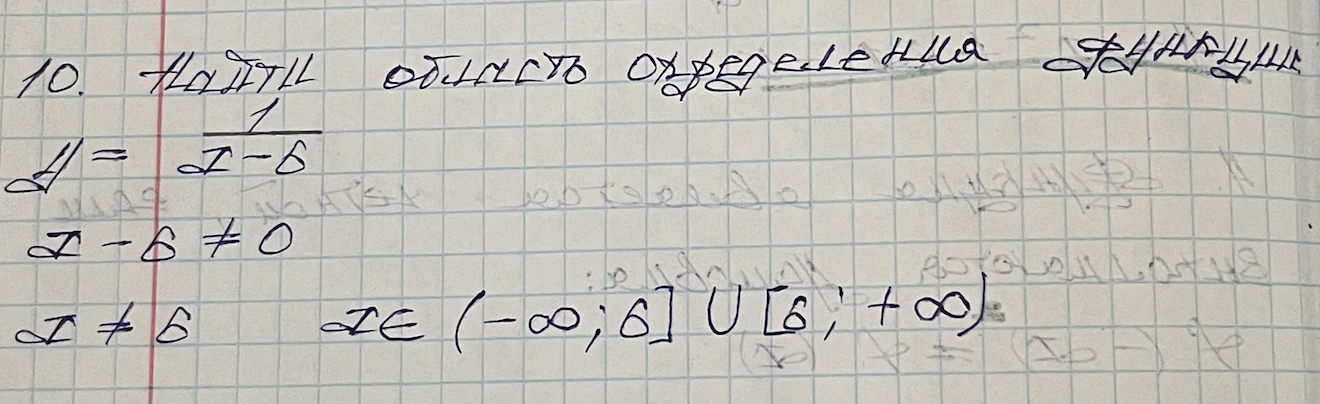 10. Найти область определения функции
y = 1/(x-6)
x - 6 ≠ 0
x ≠ 6   x ∈ (-∞; 6] ∪ [6; +∞)